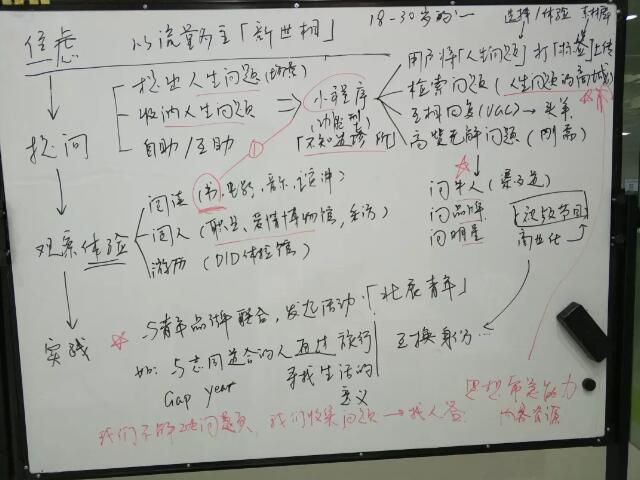 焦虑
以流量为主「新世相」
18-30岁的
选择/体验 素材库
提出人生问题(场景)
收纳人生问题
自助/互助
小程序
(功能型)
「不知道诊所」
用户将「人生问题」打「标签」上传
检索问题(人生问题的商城)
互相回复(UGC)→头条
高赞无解问题(刚需)
提问
①
问牛人(暴走连)
问品牌
问明星
视频节目
商业化
观察体验
阅读(书,电影,音乐,演讲)
阅人(职业,爱情博物馆,采访)
游历(DID体验馆)
实践
与青年品牌联合,发起活动「北辰青年」
如:与志同道合的人通过旅行
Gap year
寻找生活的
意义
互换身份…
我们不解决问题,我们收集问题→找人答
思想制造能力
内容资源